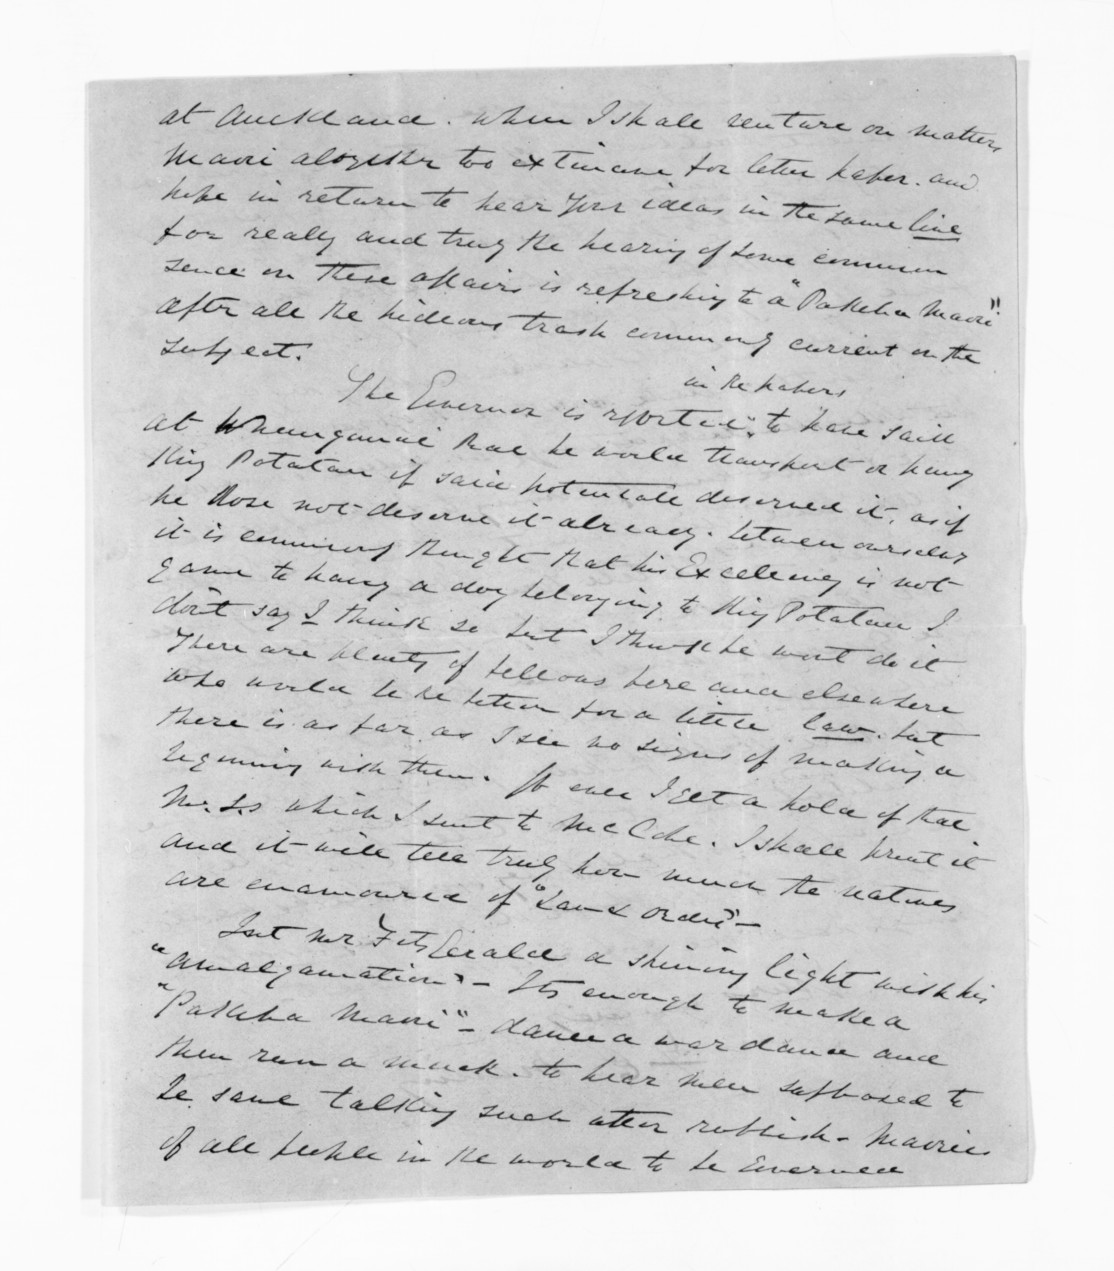 at Auckland. when I shall venture on matters
Maori altogether too extensive for letter paper. and
hope in return to hear your ideas in the same line
for realy and truly the hearing of some common
sence on these affairs is refreshing to a "Pakeha Maori"
after all the hideous trash commonly current on the
subject.
in the papers
The Governor is reported, to have said
at Whanganui that he would transport or hang
King Potatau if said potentate deserved it, as if
he dose not deserve it already. between ourselves
it is commonly thought that his Excellency is not
game to hang a dog belonging to King Potatau I
don't say I think so but I think he wont do it
There are plenty of fellows here and elsewhere
who would be the better for a little law. but
there is as far as I see no signs of making a
begining with them. If ever I get a hold of that
M.S.S which I sent to McCabe. I shall print it
and it will tell truly how much the natives
are enamoured of "Law & order" —
But Mr FitzGerald a shining light with his
"amalgamation" — Its enough to make a
"Pakeha Maori" — dance a war dance and
then run a muck. to hear men supposed to
be sane talking such utter rubbish — Maories
of all people in the world to be Governed